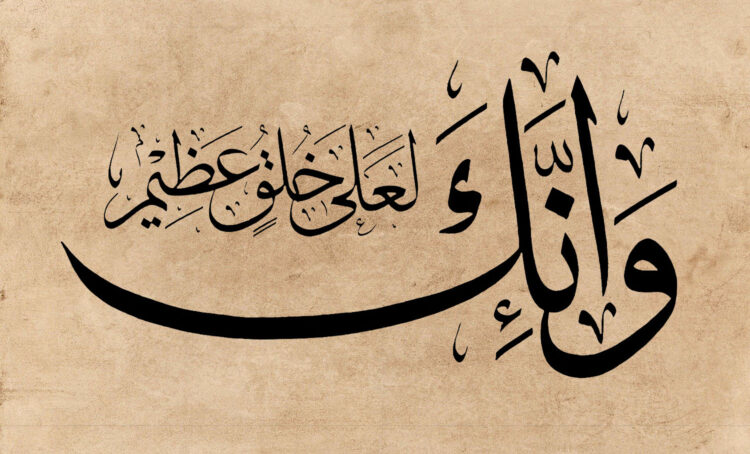 وَإِنَّكَ لَعَلَىٰ خُلُقٍ عَظِيْمٍ